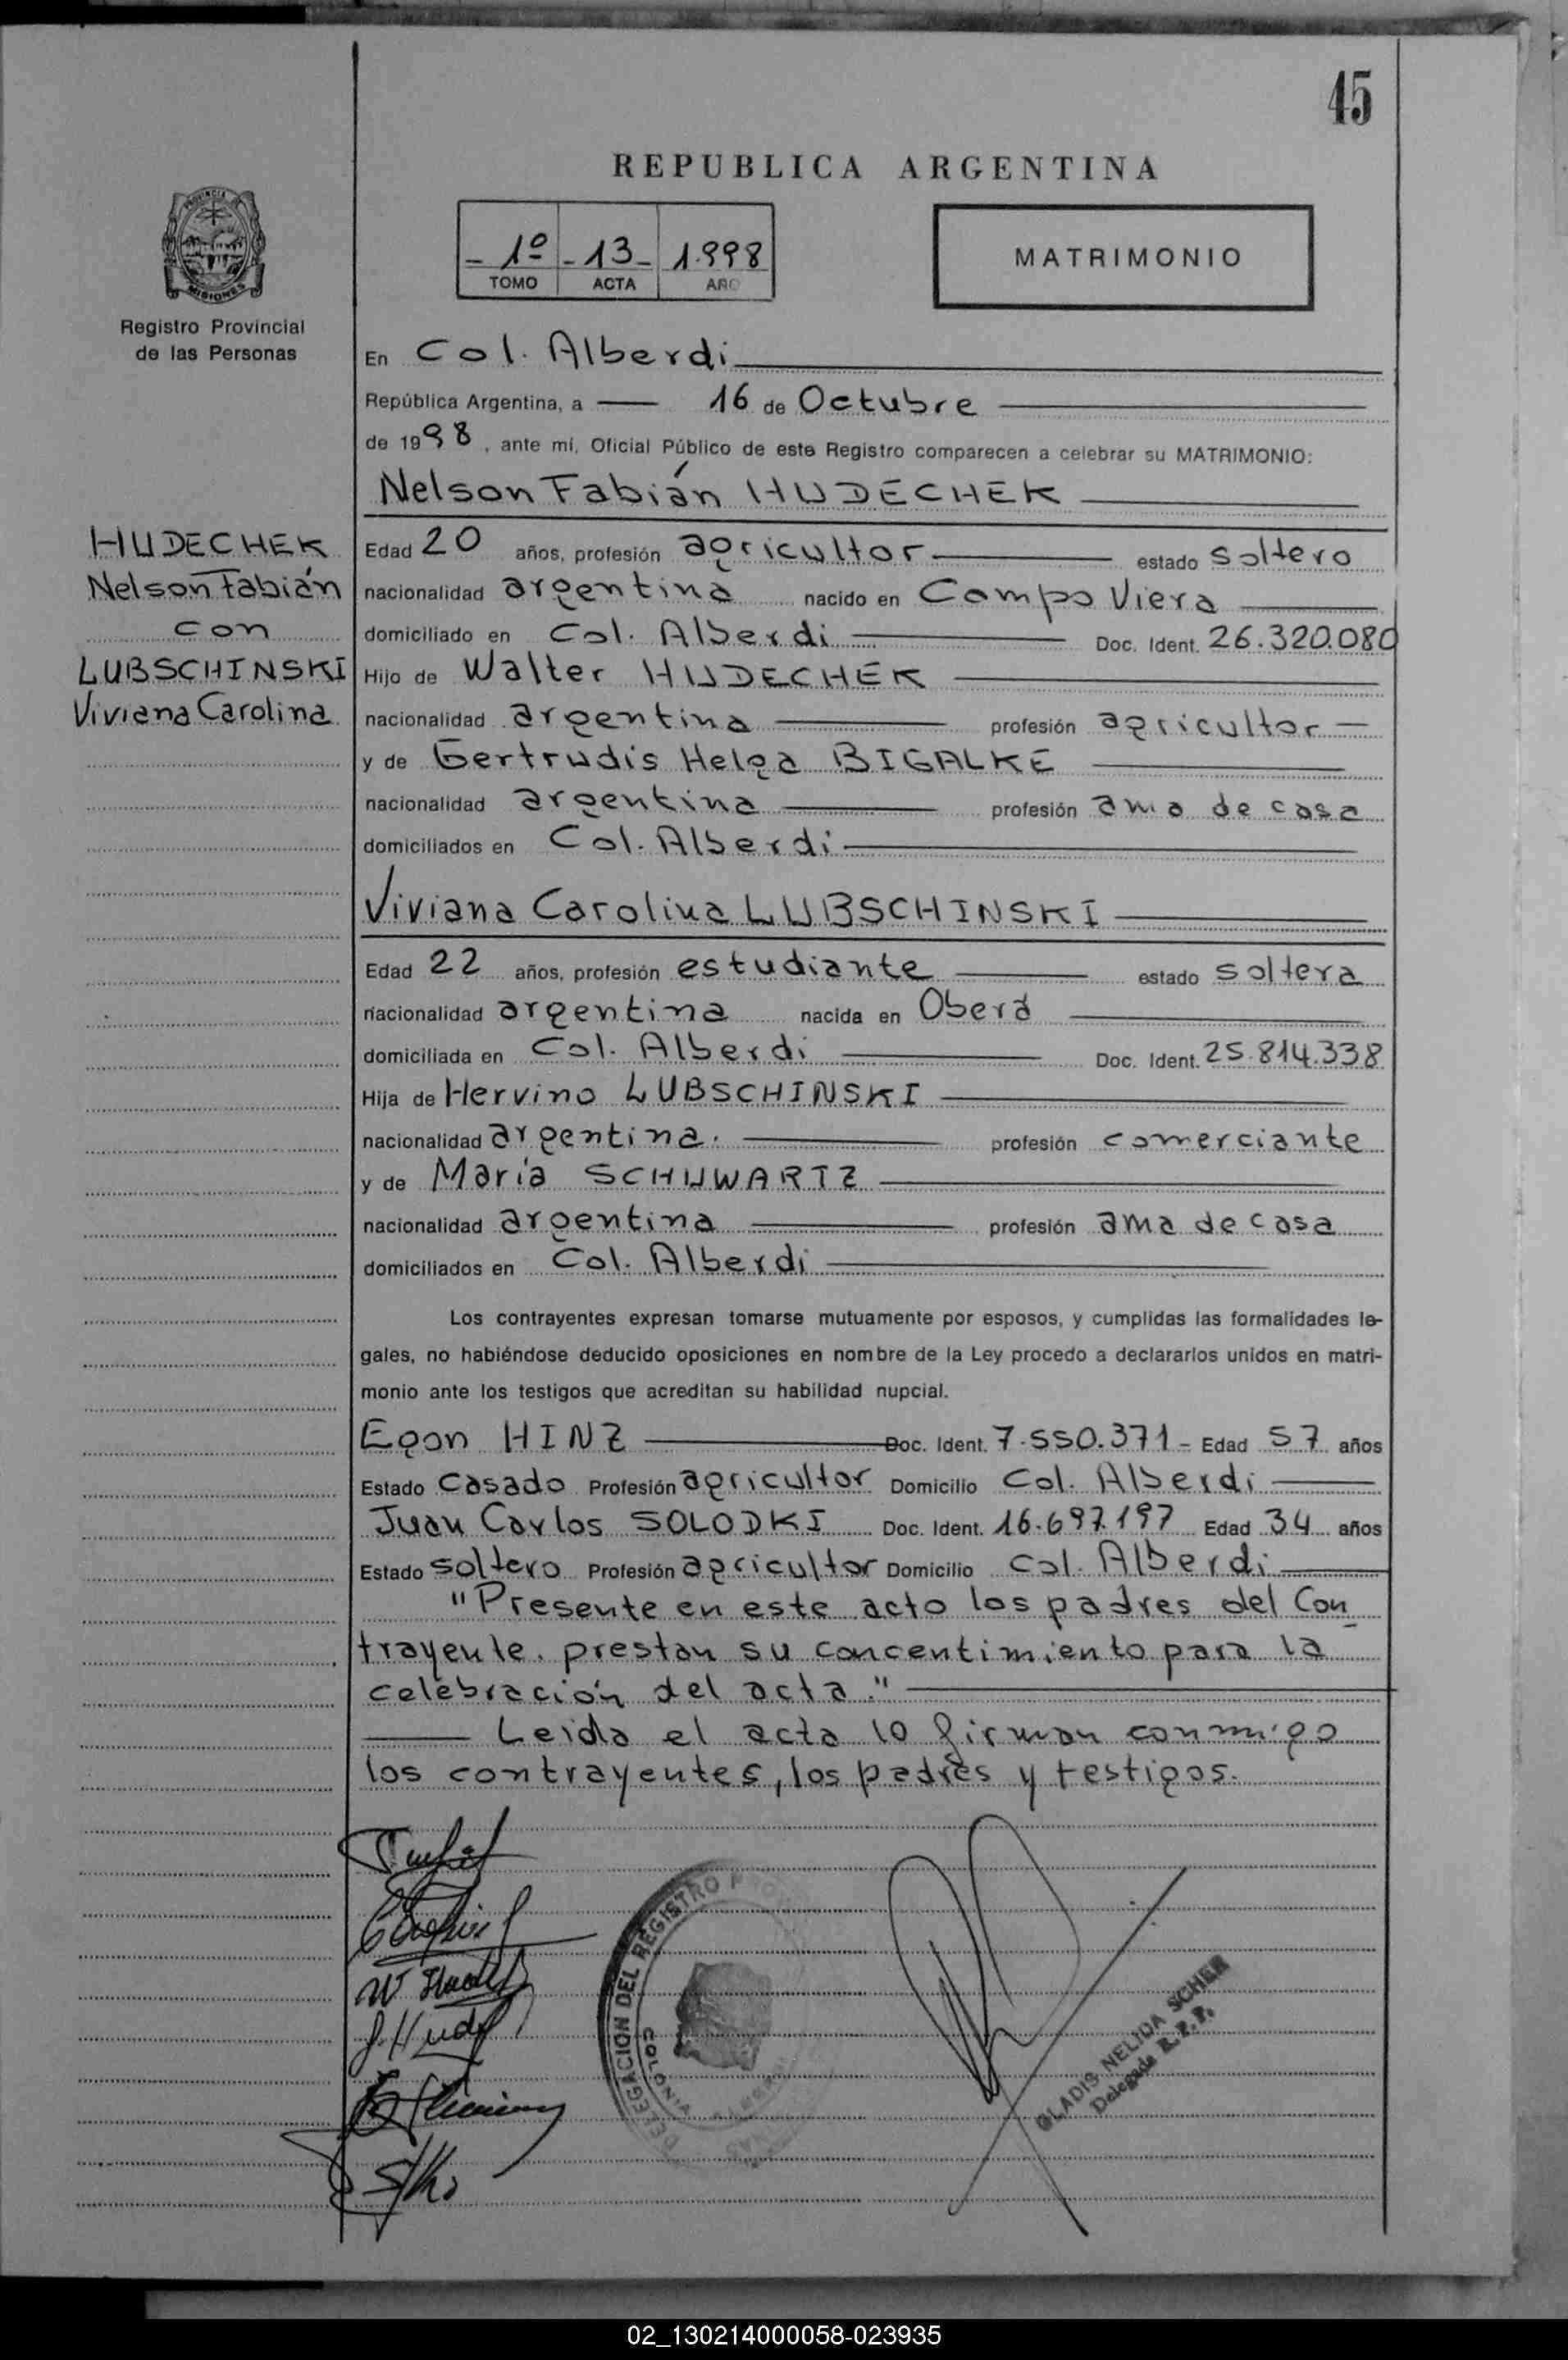 45
REPUBLICA ARGENTINA
- 1º - 13 - 1.998
TOMO ACTA AÑO
MATRIMONIO
PROVINCIA DE
MISIONES
Registro Provincial
de las Personas
En Col. Alberdi
República Argentina, a — 16 de Octubre
de 1998, ante mí, Oficial Público de este Registro comparecen a celebrar su MATRIMONIO:
Nelson Fabián HUDECHEK
HUDECHEK
Nelson Fabián
con
LUBSCHINSKI
Viviana Carolina
Edad 20 años, profesión agricultor estado soltero
nacionalidad argentina nacido en Campo Viera
domiciliado en Col. Alberdi Doc. Ident. 26.320.080
Hijo de Walter HUDECHEK
nacionalidad argentina profesión agricultor
y de Gertrudis Helga BIGALKE
nacionalidad argentina profesión ama de casa
domiciliados en Col. Alberdi
Viviana Carolina LUBSCHINSKI
Edad 22 años, profesión estudiante estado soltera
nacionalidad argentina nacida en Oberá
domiciliada en Col. Alberdi Doc. Ident. 25.814.338
Hija de Hervino LUBSCHINSKI
nacionalidad argentina. profesión comerciante
y de María SCHUWARTZ
nacionalidad argentina profesión ama de casa
domiciliados en Col. Alberdi
Los contrayentes expresan tomarse mutuamente por esposos, y cumplidas las formalidades le-
gales, no habiéndose deducido oposiciones en nombre de la Ley procedo a declararlos unidos en matri-
monio ante los testigos que acreditan su habilidad nupcial.
Egon HINZ Doc. Ident. 7.550.371 - Edad 57 años
Estado casado Profesión agricultor Domicilio Col. Alberdi
Juan Carlos SOLODKI Doc. Ident. 16.697.197 Edad 34 años
Estado soltero Profesión agricultor Domicilio Col. Alberdi
"Presente en este acto los padres del Con
trayente. prestan su concentimiento para la
celebración del acta."
Leída el acta lo firman conmigo
los contrayentes, los padres y testigos.
DELEGACION DEL REGISTRO
COLONIA
GLADIS NELIDA SCHER
Delegada R.P.P.
02_130214000058-023935